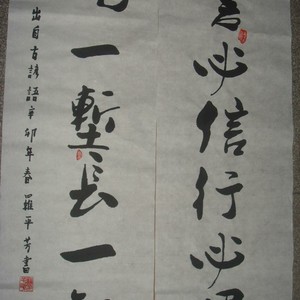 言必信行必
一塹長一
出自古諺語辛卯年春四維平芳書